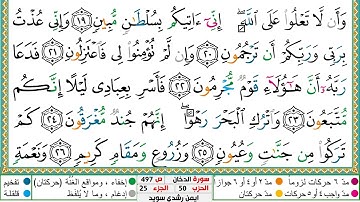 وَأَن لَّا تَعْلُوا۟ عَلَى ٱللَّهِ ۖ إِنِّىٓ ءَاتِيكُم بِسُلْطَـٰنٍ مُّبِينٍ ١٩ وَإِنِّى عُذْتُ
بِرَبِّى وَرَبِّكُمْ أَن تَرْجُمُونِ ٢٠ وَإِن لَّمْ تُؤْمِنُوا۟ لِى فَٱعْتَزِلُونِ ٢١ فَدَعَا
رَبَّهُۥٓ أَنَّ هَـٰٓؤُلَآءِ قَوْمٌ مُّجْرِمُونَ ٢٢ فَأَسْرِ بِعِبَادِى لَيْلًا إِنَّكُم
مُّتَّبَعُونَ ٢٣ وَٱتْرُكِ ٱلْبَحْرَ رَهْوًا ۖ إِنَّهُمْ جُندٌ مُّغْرَقُونَ ٢٤ كَمْ
تَرَكُوا۟ مِن جَنَّـٰتٍ وَعُيُونٍ ٢٥ وَزُرُوعٍ وَمَقَامٍ كَرِيمٍ ٢٦ وَنَعْمَةٍ
مدّ ٦ حركات لزوماً مدّ ٢ أو ٤ أو ٦ جوازاً سورة الدخان ص 497 إخفاء، ومواقع الغنّة (حركتان) تفخيم
مدّ حركتان الحزب 50 الجزء 25 إدغام، وما لا يُلفظ قلقلة
أيمن رشدي سويد